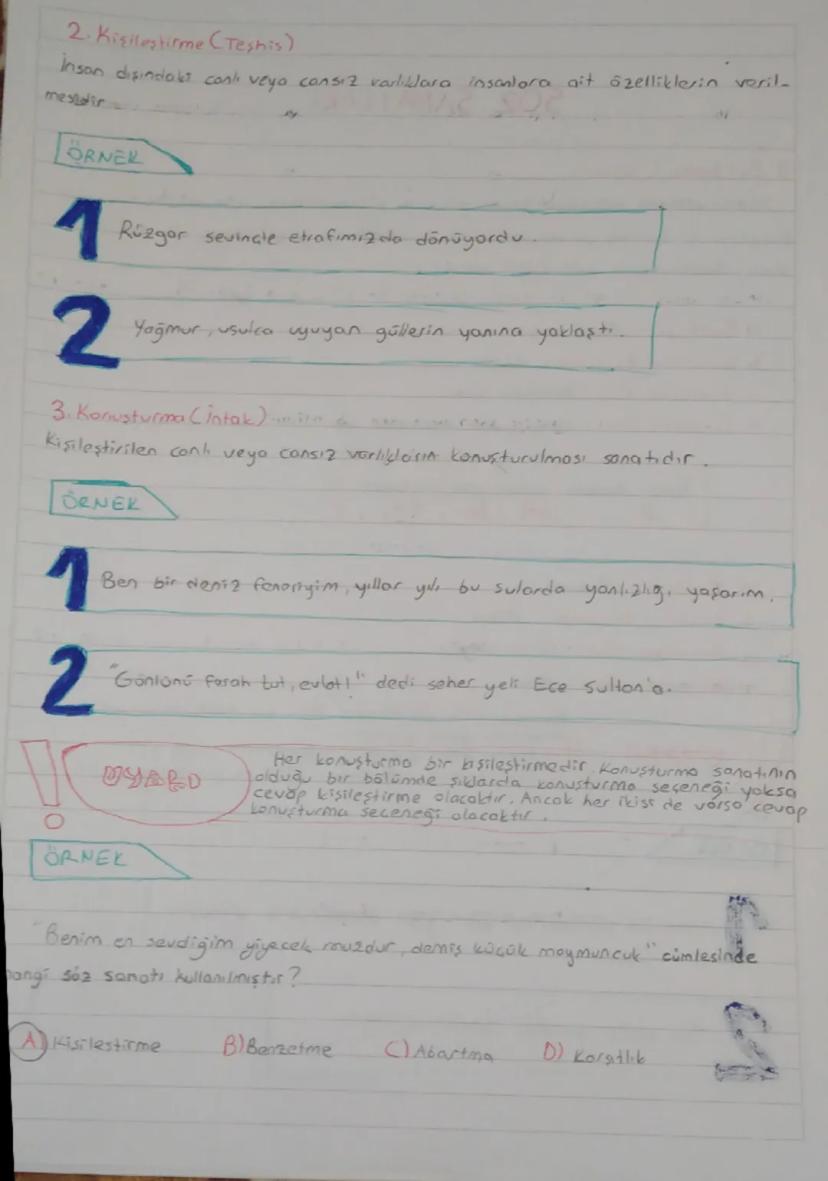 2. Kişileştirme (Teşhis)
İnsan dışındaki canlı veya cansız varlıklara insanlara ait özelliklerin veril-
mesidir
ÖRNEK
1 Rüzgar sevinçle etrafımızda dönüyordu.
2 Yağmur, usulca uyuyan güllerin yanına yaklaştı.
3. Konuşturma (İntak)
Kişileştirilen canlı veya cansız varlıkların konuşturulması sanatıdır.
ÖRNEK
1 Ben bir deniz feneriyim, yıllar yılı bu sularda yanlızlığı yaşarım.
2 "Gönlünü farah tut, evlat!" dedi seher yeli Ece Sultan'a.
Her konuşturma bir kişileştirmedir. Konuşturma sanatının
! UYARI olduğu bir bölümde şıklarda konuşturma seçeneği yoksa
cevap kişileştirme olacaktır. Ancak her ikisi de varsa cevap
konuşturma seçeneği olacaktır.
ÖRNEK
"Benim en sevdiğim yiyecek muzdur, demiş küçük maymuncuk" cümlesinde
hangi söz sanatı kullanılmıştır?
A) Kişileştirme B) Benzetme C) Abartma D) Karşıtlık